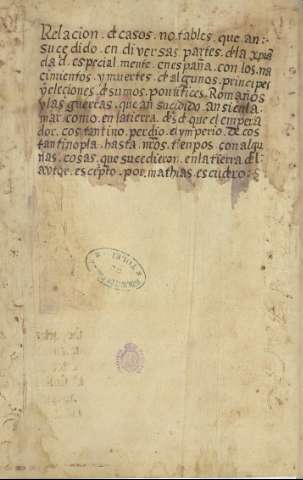 Relacion. de casos. notables. que an:
sucedido. en diversas partes. dela xpia
dad. especial mente. en españa. con los. na
cimientos. y muertes. de algunos. principes
y eleciones. de sumos. pontifices. Romanos
y las guerras. que an sucedido. ansienla
mar. como. en latierra. desde que el empera
dor. costantino. perdio. el ymperio. de cos
tantinopla. hasta. nros. tienpos. con algu
nas. cosas. que sucedieron. en la tierra del
autor. escripto. por. mathias. escudero: